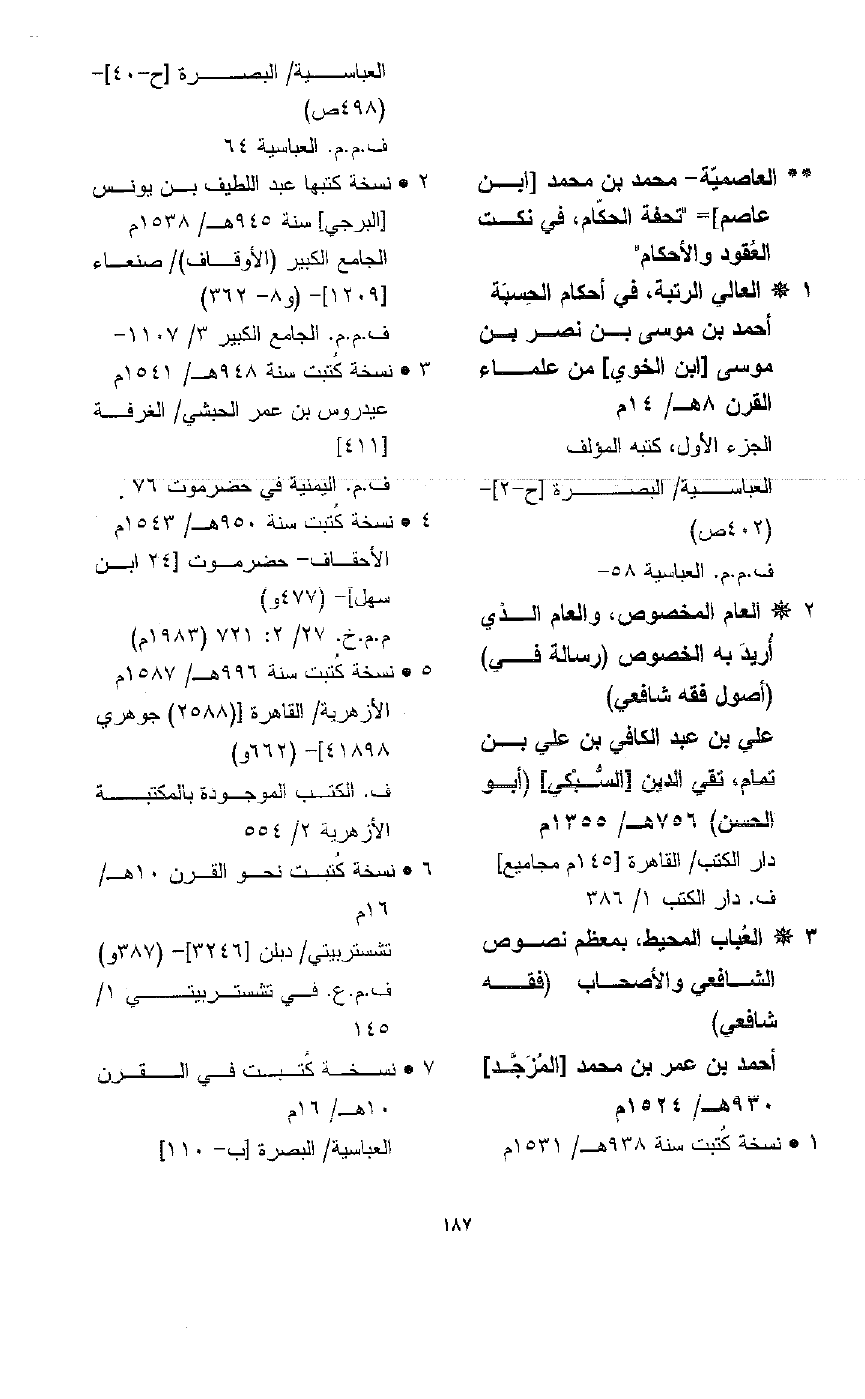 ** العاصميّة- محمد بن محمد [ابن
عاصم]= "تحفة الحكّام، في نكت
العُقود والأحكام"
١ * العالي الرتبة، في أحكام الحِسبَة
أحمد بن موسى بن نصر بن
موسى [ابن الخوي] من علماء
القرن ٨هـ/ ١٤م
الجزء الأول، كتبه المؤلف
العباسية/ البصرة [ح-٢]-
(٤٠٢ص)
ف.م.م. العباسية ٥٨-
٢ * العام المخصوص، والعام الذي
أُريدَ به الخصوص (رسالة في)
(أصول فقه شافعي)
علي بن عبد الكافي بن علي بن
تمام، تقي الدين [السُّبْكي] (أبو
الحسن) ٧٥٦هـ/ ١٣٥٥م
دار الكتب/ القاهرة [١٤٥م مجاميع]
ف. دار الكتب ١/ ٣٨٦
٣ * العُباب المحيط، بمعظم نصوص
الشافعي والأصحاب (فقه
شافعي)
أحمد بن عمر بن محمد [المُزَجَّد]
٩٣٠هـ/ ١٥٢٤م
١ • نسخة كُتبت سنة ٩٣٨هـ/ ١٥٣١م
العباسية/ البصرة [ح-٤٠]-
(٤٩٨ص)
ف.م.م. العباسية ٦٤
٢ • نسخة كتبها عبد اللطيف بن يونس
[البرجي] سنة ٩٤٥هـ/ ١٥٣٨م
الجامع الكبير (الأوقاف)/ صنعاء
[١٢٠٩]- (و٨- ٣٦٢)
ف.م.م. الجامع الكبير ٣/ ١١٠٧-
٣ • نسخة كُتبت سنة ٩٤٨هـ/ ١٥٤١م
عيدروس بن عمر الحبشي/ الغرفة
[٤١١]
ف.م. اليمنية في حضرموت ٧٦.
٤ • نسخة كُتبت سنة ٩٥٠هـ/ ١٥٤٣م
الأحقاف- حضرموت [٢٤ ابن
سهل]- (٤٧٧و)
م.م.خ. ٢٧/ ٢: ٧٢١ (١٩٨٣م)
٥ • نسخة كُتبت سنة ٩٩٦هـ/ ١٥٨٧م
الأزهرية/ القاهرة [(٢٥٨٨) جوهري
٤١٨٩٨]- (٦٦٢و)
ف. الكتب الموجودة بالمكتبة
الأزهرية ٢/ ٥٥٤
٦ • نسخة كُتبت نحو القرن ١٠هـ/
١٦م
تشستربيتي/ دبلن [٣٢٤٦]- (٣٨٧و)
ف.م.ع. في تشستربيتي ١/
١٤٥
٧ • نسخة كُتبت في القرن
١٠هـ/ ١٦م
العباسية/ البصرة [ب- ١١٠]
١٨٧